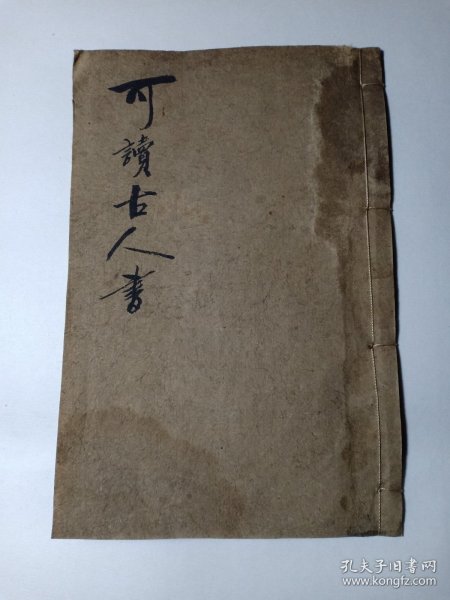 可讀古人書
孔夫子旧书网
www.kongfz.com